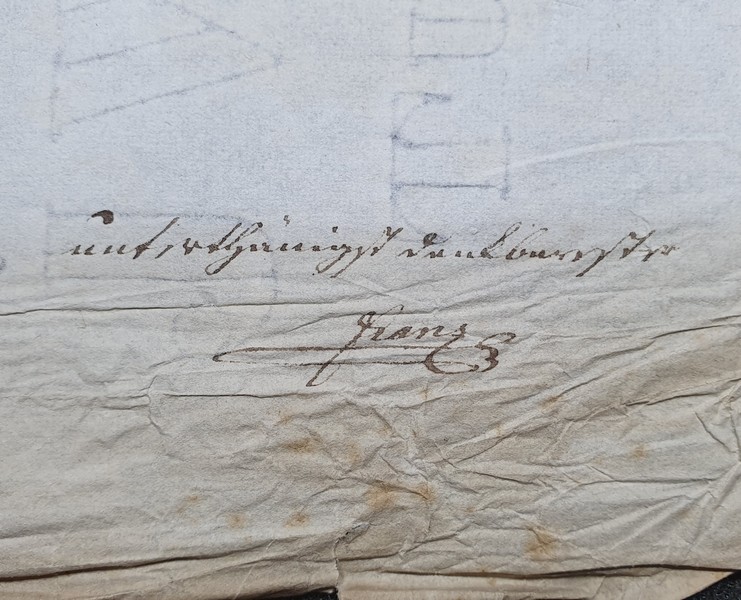 unterthänigst dankbarester
Franz